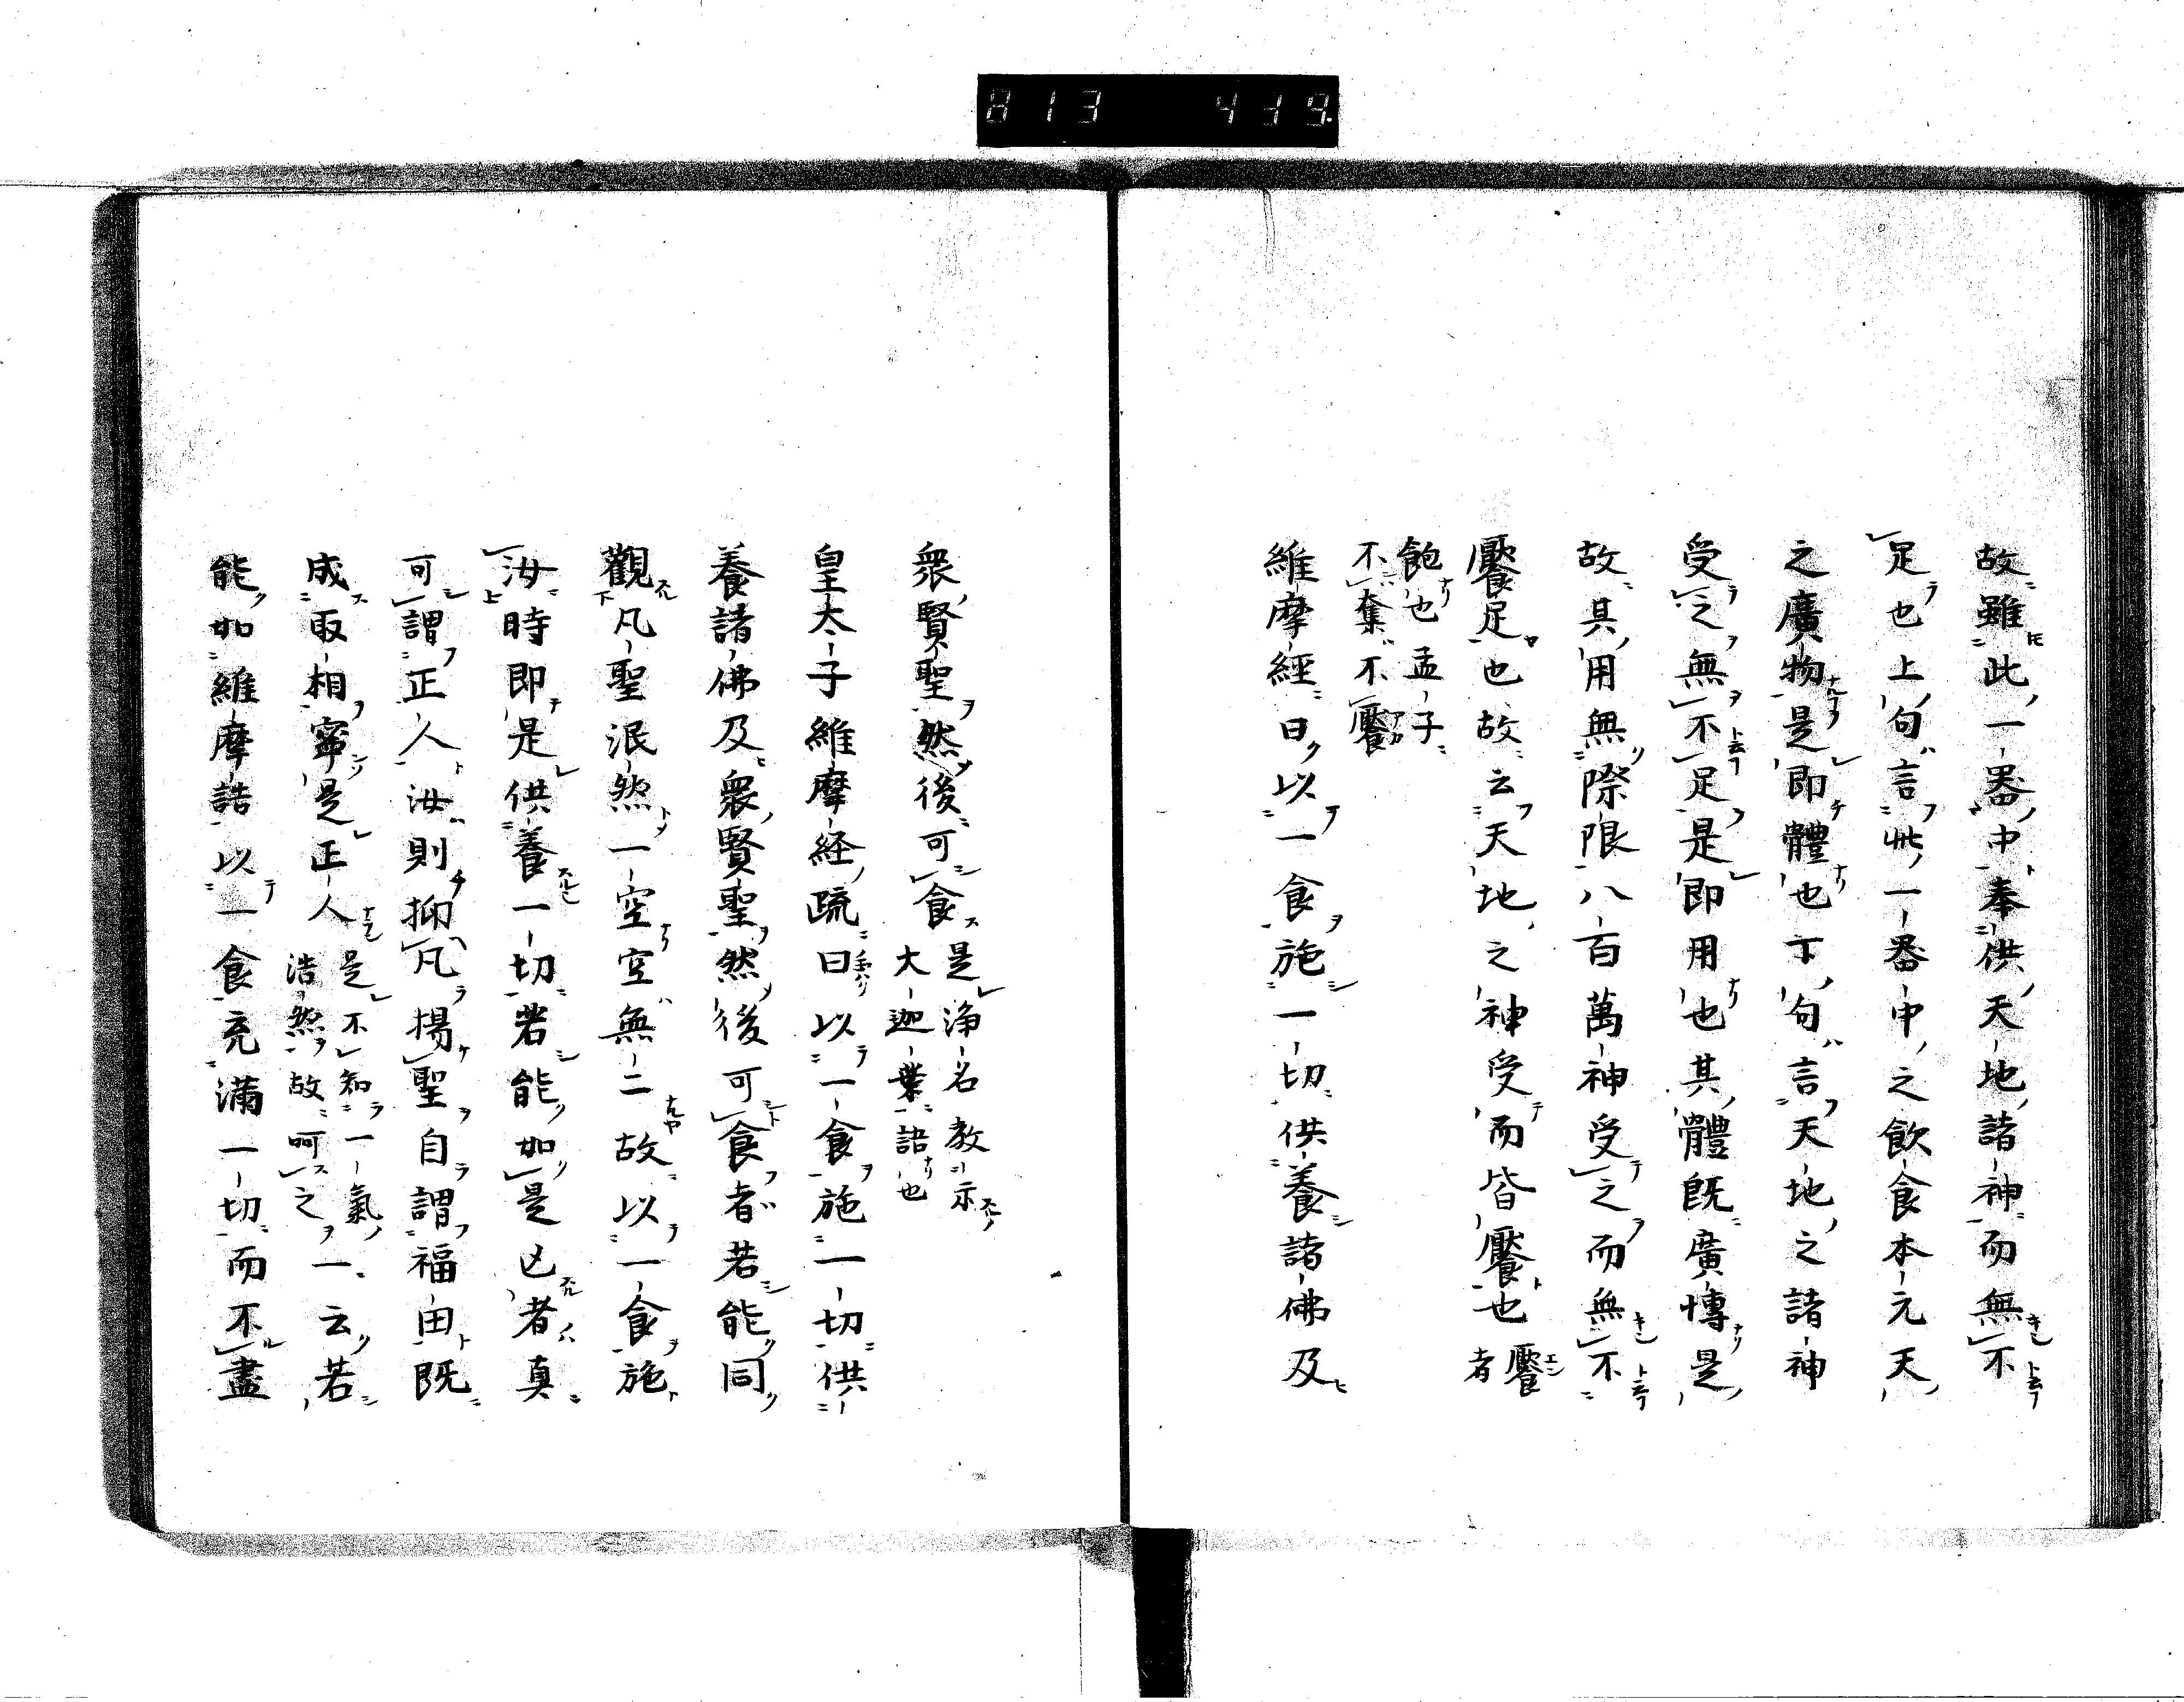 813 419.
故雖此一器中奉供天地諸神而無不
足也上句言此一器中之飲食本元天
之廣物是即體也下句言天地之諸神
受之無不足是即用也其體既廣博是
故其用無際限八百萬神受之而無不
饜足也故云天地之神受而皆饜也饜者
飽也孟子
不奪不饜
維摩經曰以一食施一切供養諸佛及
衆賢聖然後可食是浄名教示
大迦葉語也
皇太子維摩経疏曰以一食施一切供
養諸佛及衆賢聖然後可食者若能同
觀凡聖泯然一空空無二故以一食施
汝時即是供養一切若能如是已者真
可謂正人汝則抑凡揚聖自謂福田既
成取相寧是正人是不知一氣
浩然故呵之一云若
能如維摩詰以一食充滿一切而不盡